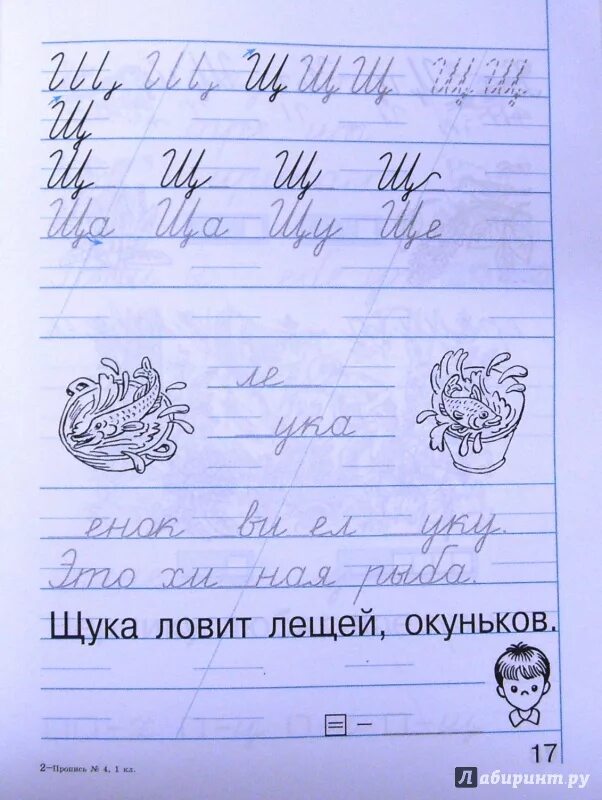 Щ Щ Щ Щ Щ
Щ
Щ Щ Щ Щ
Ща Ща Щу Ще
ле
ука
енок ви ел уку.
Это хи ная рыба.
Щука ловит лещей, окуньков.
= –
17
2—Пропись № 4, 1 кл.
Лабиринт.ру